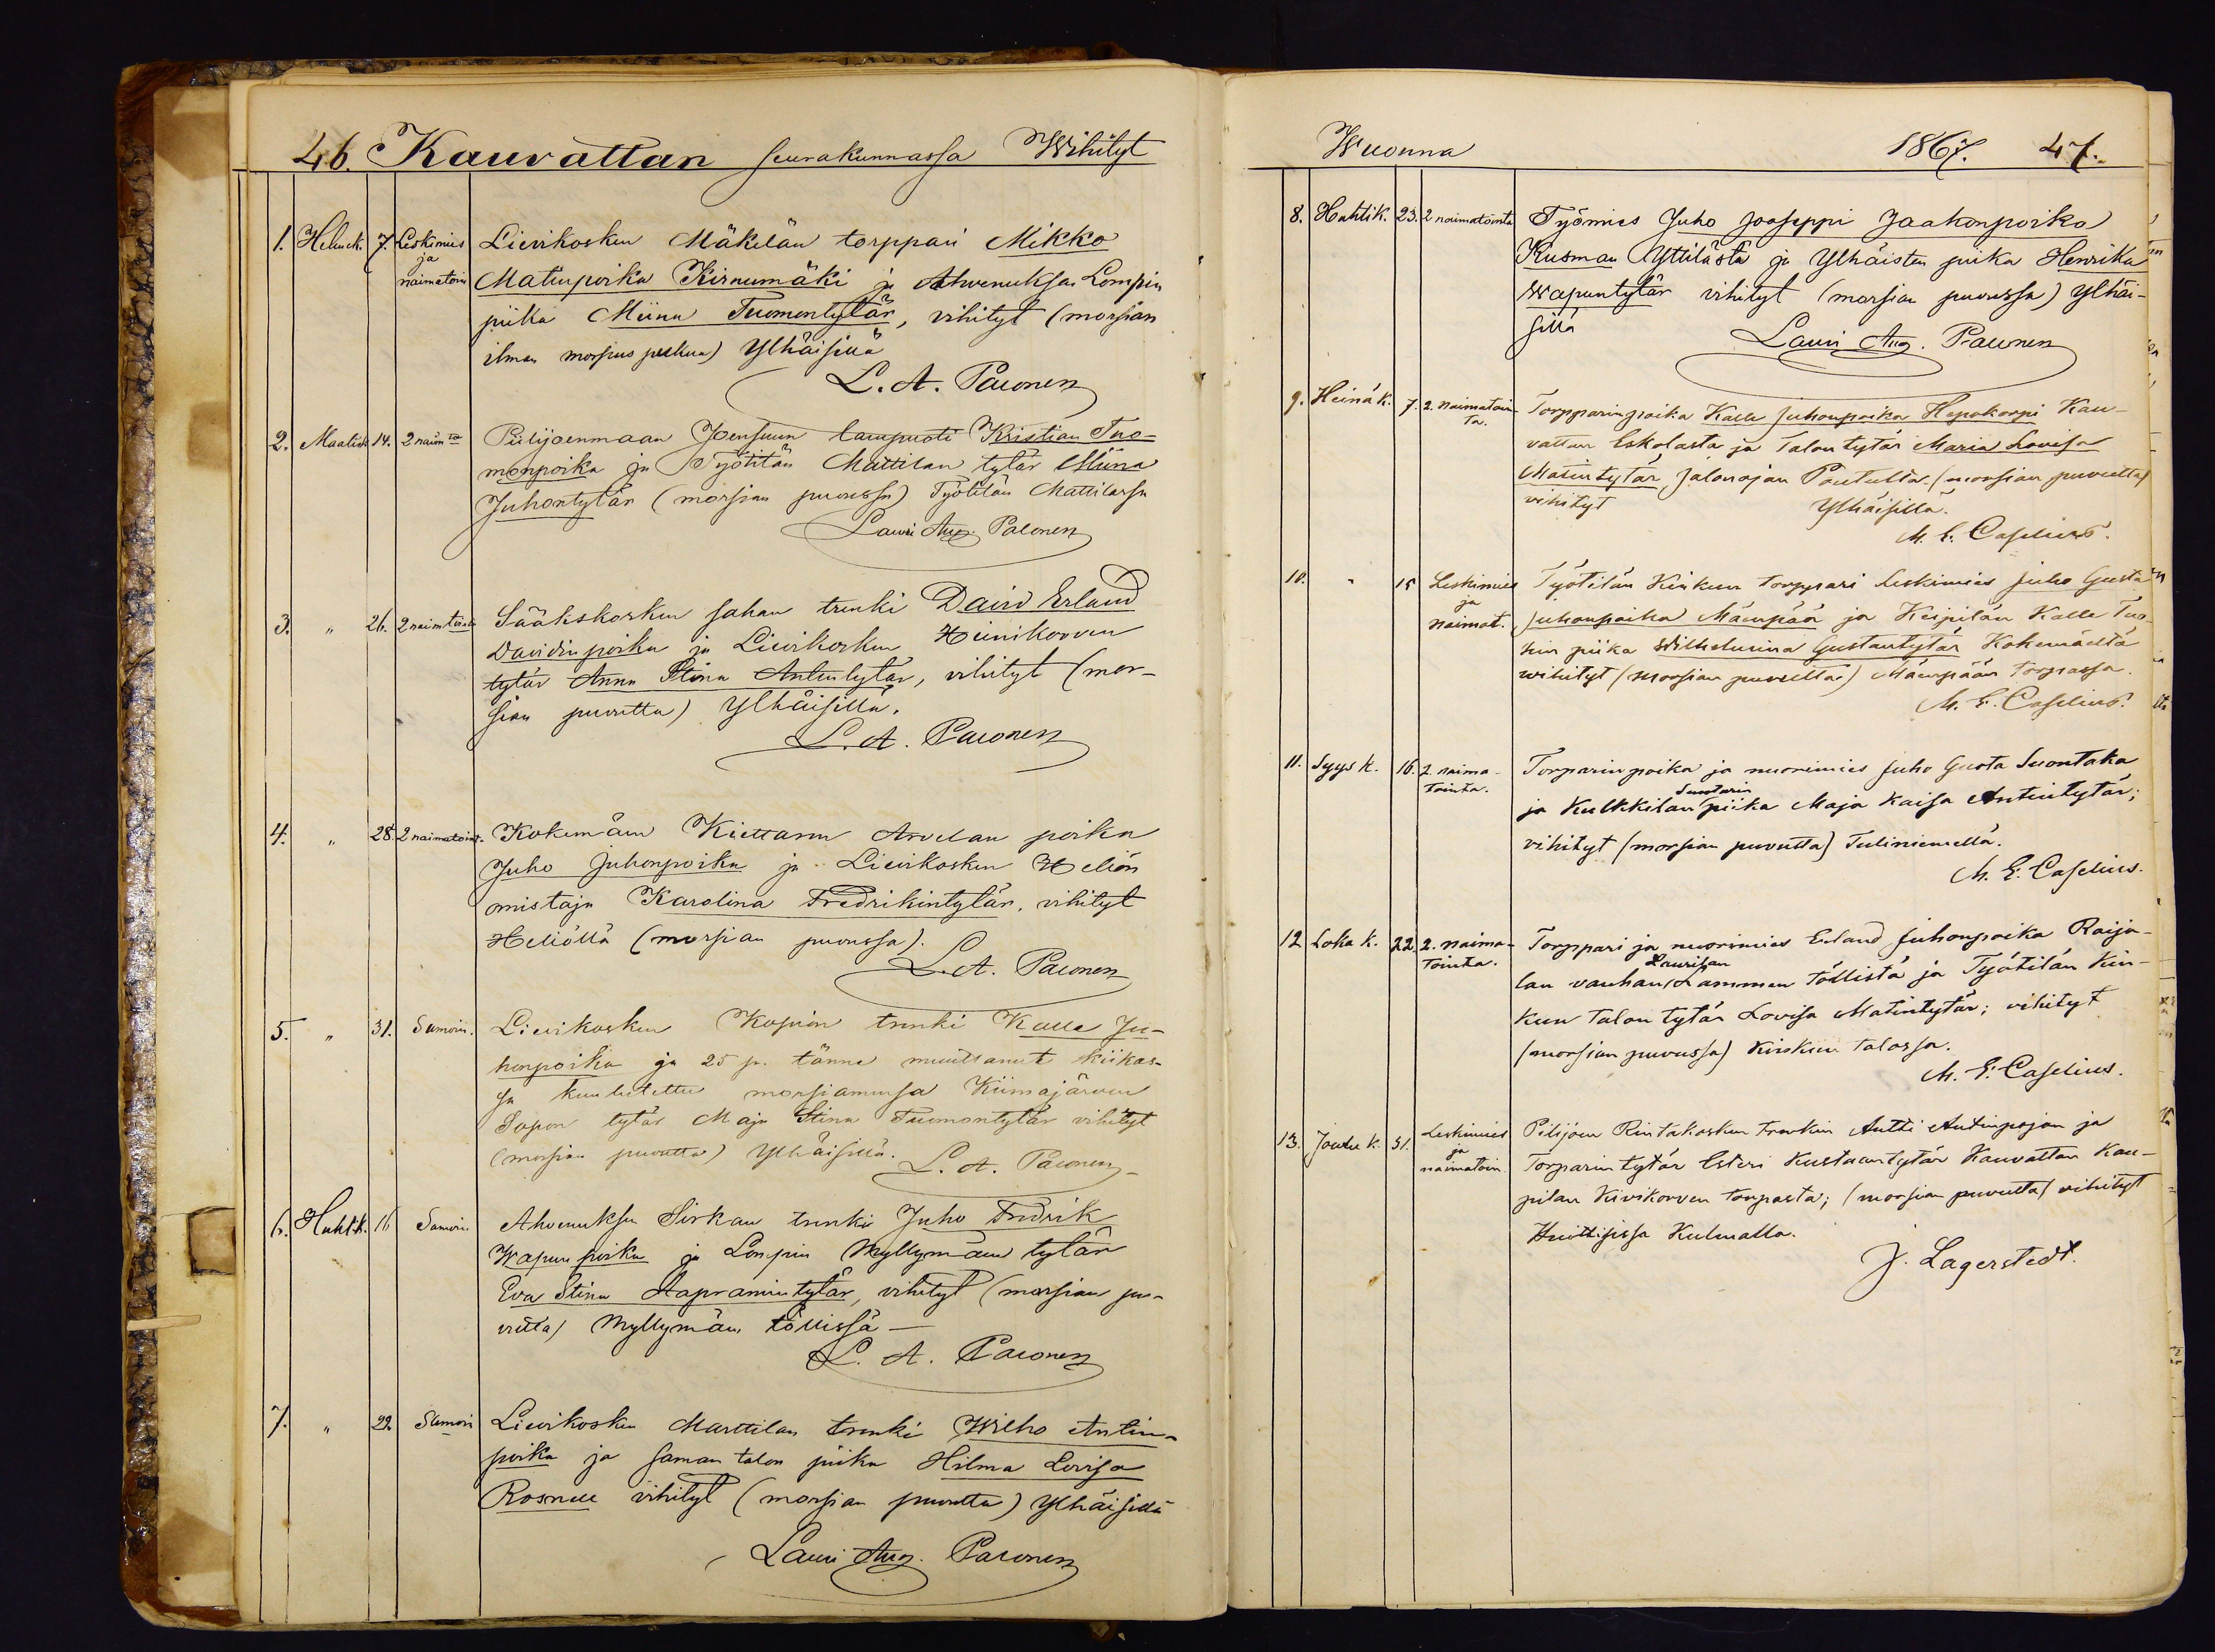 46. Kauvattan seurakunnassa Wihityt
1. Helmck. 7. Leskimies ja naimatoin Lievikosken Mäkelän torppari Mikko
Matinpoika Kirnumäki ja Ahvenuksan Lompin
piika Miina Tuomontytär, vihityt (morsian
ilman morsius pukua) Ylhäisillä
L. A. Palonen
2. Maalisk. 14. 2 naim Piilijoenmaan Joensuun lampuoti Kristian Tuo-
monpoika ja Työtilän Mattilan tytär Miina
Juhontytär (morsian puvussa) Työtilän Mattilassa
Lauri Aug. Palonen
3. " 26. 2 naimtointa Sääkskosken sahan trenki David Erland
Davidinpoika ja Lievikosken Heinikorven
tytär Anna Stina Antintytär, vihityt (mor-
sian puvutta) Ylhäisillä.
L. A. Palonen
4. " 28. 2 naimatoint. Kokemäen Kiettaren Arvelan poika
Juho Juhonpoika ja Lievikosken Heliön
omistaja Karolina Fredrikintytär, vihityt
Heliöllä (morsian puvussa).
L. A. Palonen
5. " 31. Samoin. Lievikosken trenki Kalle Ju-
honpoika ja 25 p. tänne muuttanut Kiikas-
sa kuulutettu morsiamensa Kiimajärven
Sapon tytär Maja Stina Tuomontytär vihityt
(morsian puvutta) Ylhäisillä.
L. A. Palonen
6. Huhtk. 16 Samoin. Ahvenuksen Sirkan trenki Juho Fredrik
Wapunpoika ja Lompin Myllymäen tytär
Eva Stina Aapramintytär, vihityt (morsian pu-
vutta) Myllymäen töllissä —
L. A. Palonen
7. " 22. Samoin Lievikosken Marttilan trenki Wilho Antin-
poika ja saman talon piika Hilma Lovisa
Rosnell vihityt (morsian puvutta) Ylhäisillä
Lauri Aug. Palonen
Wuonna 1867. 47.
8. Huhtik. 23. 2 naimatointa Työmies Juho Jooseppi Jaakonpoika
Kusman Yttilästä ja Ylhäisten piika Henrika
Wapuntytär vihityt (morsian puvussa) Ylhäi-
sillä
Lauri Aug. Palonen
9. Heinäk. 7. 2. naimatoin-ta. Torpparinpoika Kalle Juhonpoika Hepokorpi Kau-
vattan Eskolasta ja Talon tytär Maria Lovisa
Matintytär, Jalonojan Pautulta (morsian puvutta)
vihityt Ylhäisillä.
M. E. Caselius.
10. " 15 Leskimies ja naimat. Työtilän Kinkun torppari Leskimies Juho Gusta
Juhonpoika Mäenpää ja Keipilän Kalle Tuo-
hin piika Wilhelmina Gustantytär Kokemäeltä
wihityt (morsian puvutta) Mäenpään torpassa.
M. E. Caselius.
11. Syys k. 16. 2. naima-tointa. Torparinpoika ja nuorimies Juho Gusta Suontaka
ja Kulkkilan Suutarin piika Maja Kaisa Antintytär;
vihityt (morsian puvutta) Tuliniemellä.
M. E. Caselius.
12 Loka k. 22. 2. naima-tointa. Torppari ja nuorimies Erland Juhonpoika Raija-
lan vanhan Laurilan Lammen töllistä ja Työtilän Kin-
kun talon tytär Lovisa Matintytär; vihityt
(morsian puvussa) Kinkun talossa.
M. E. Caselius.
13. Joulu k. 31. Leskimies ja naimatoin Pilijoen Rintakosken trenkin Antti Antinpojan ja
Torparin tytär Esteri Kustaantytär Kauvattan Kau-
pilan Kivikorven torpasta; (morsian puvutta) vihityt
Huittisissa Kulmalla.
J. Lagerstedt.